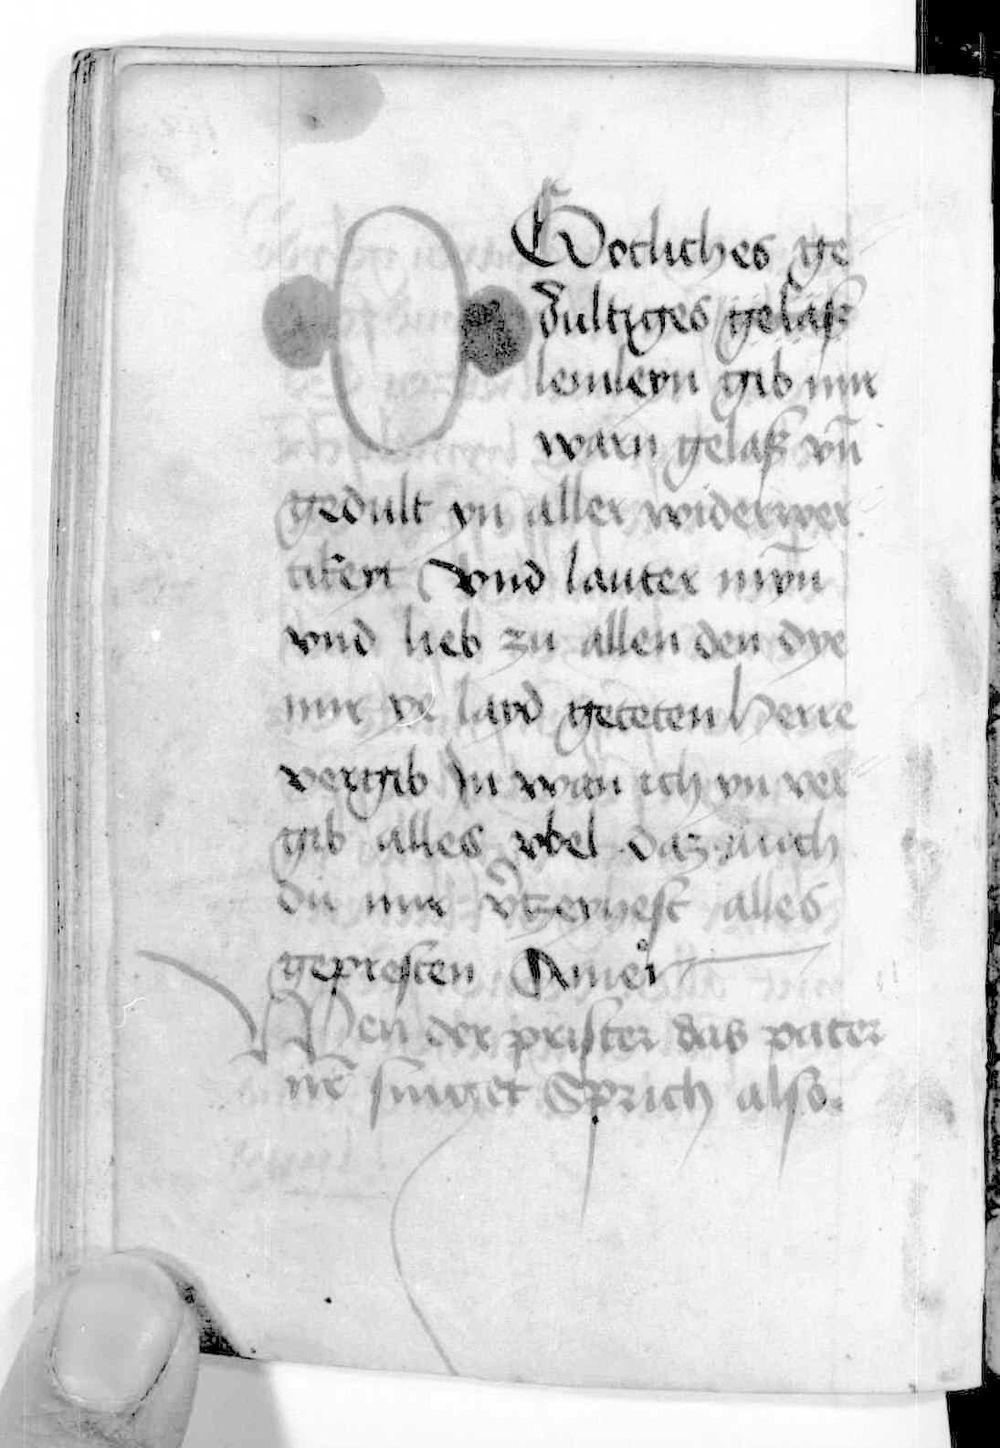 O Gotliches ge
dultiges gelaß
lemleyn gib mir
warn gelaß vn̄
gedult yn aller widerwer
tikeyt Vnd lauter myn̄
vnd lieb zu allen den dye
mir ye layd geteten Herre
vergib In wan ich yn ver
gib alles vbel daz auch
du mir v̉tzeyhest alles
gepresten Amen
Wen der prister das pater
nr̄ singet Sprich also.